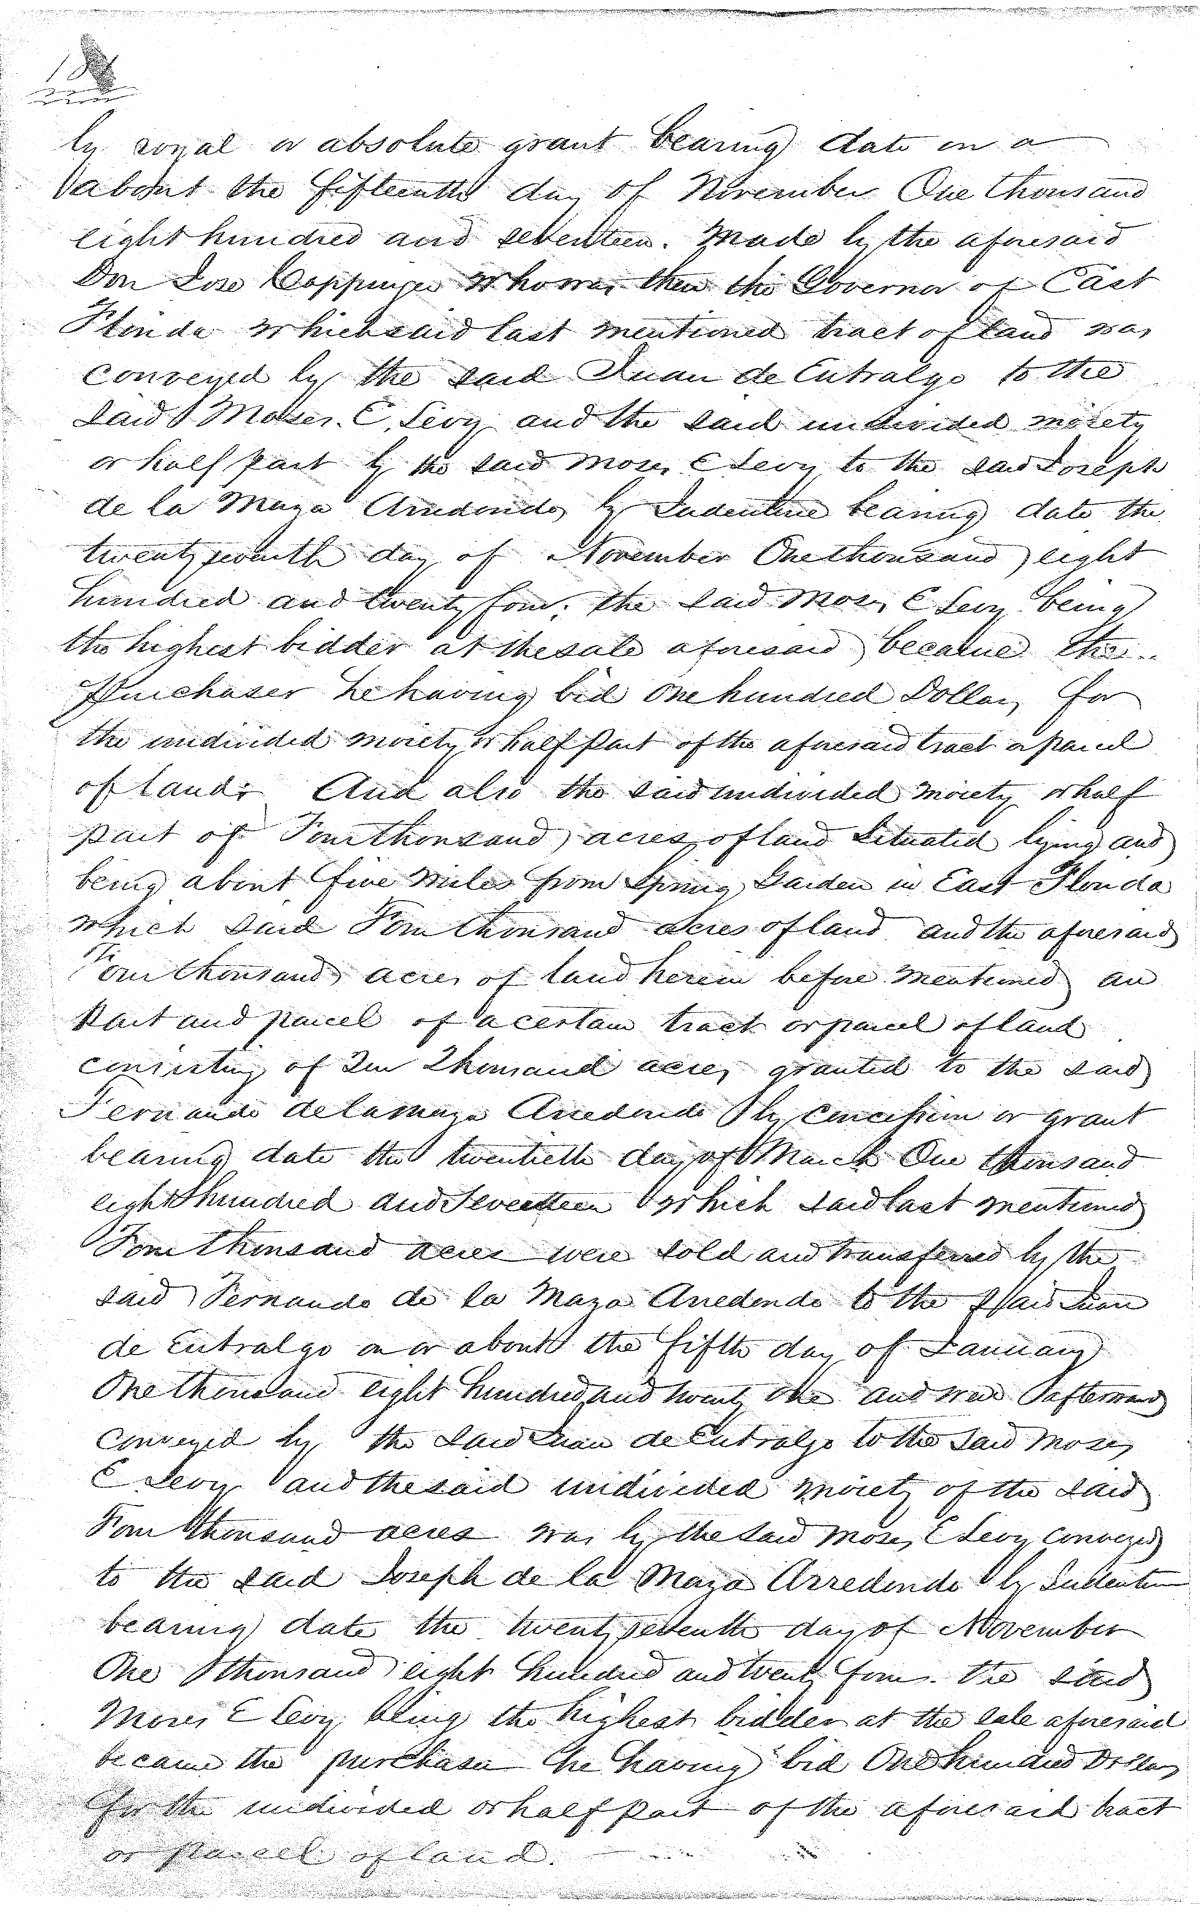 by royal or absolute grant bearing date on a
about the fifteenth day of November One thousand
eight hundred and seventeen. Made by the aforesaid
Don Jose Coppinger who was then the Governor of East
Florida which said last mentioned tract of land was
conveyed by the said Juan de Entralgo to the
said Moses. E. Levy and the said undivided moiety
or half part by the said Moses E Levy to the said Joseph
de la Maza Arredondo by Indenture bearing date the
twenty seventh day of November One thousand eight
hundred and twenty four, the said Moses E Levy being
the highest bidder at the sale aforesaid became the
Purchaser he having bid One hundred Dollars for
the undivided moiety or half part of the aforesaid tract or parcel
of land; And also the said undivided moiety or half
part of Four thousand acres of land situated lying and
being about five miles from Spring Garden in East Florida
which said Four thousand acres of land and the aforesaid
Four thousand acres of land herein before mentioned are
part and parcel of a certain tract or parcel of land
consisting of Ten Thousand acres granted to the said
Fernando de la maza Arredondo by concession or grant
bearing date the twentieth day of March One thousand
eight hundred and Seventeen which said last mentioned
Four thousand acres were sold and transferred by the
said Fernando de la Maza Arredondo to the said Juan
de Entralgo on or about the fifth day of January
One thousand eight hundred and twenty one and was afterwards
conveyed by the said Juan de Entralgo to the said Moses
E Levy and the said undivided moiety of the said
Four thousand acres was by the said Moses E Levy conveyed
to the said Joseph de la Maza Arredondo by Indenture
bearing date the twenty seventh day of November
One thousand eight hundred and twenty four. the said
Moses E Levy being the highest bidder at the sale aforesaid
became the purchaser he having bid One hundred Dollars
for the undivided or half part of the aforesaid tract
or parcel of land.